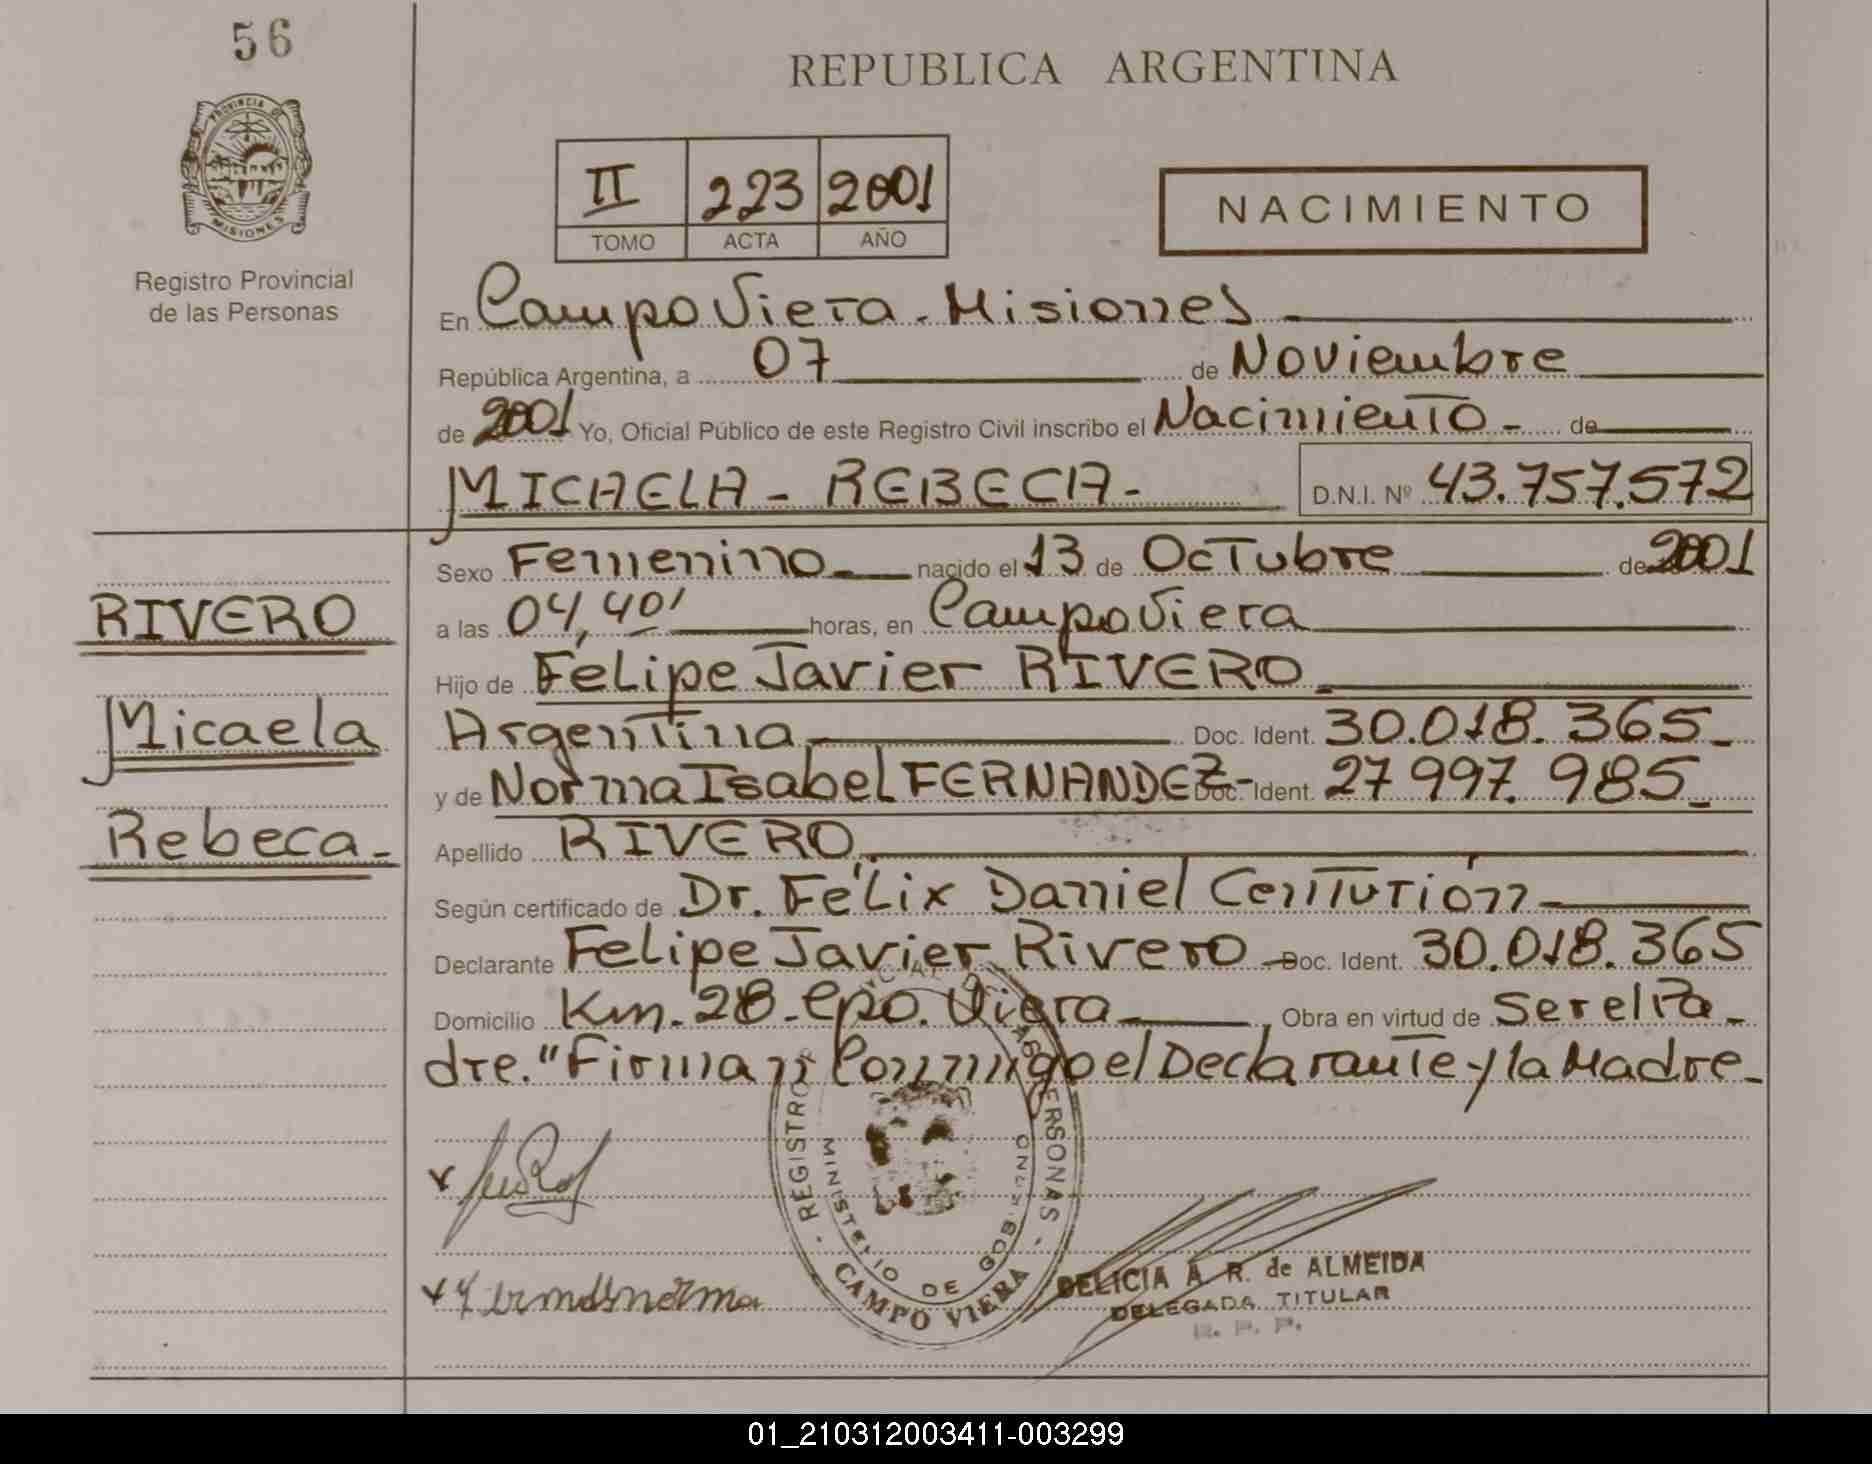 56
REPUBLICA ARGENTINA
PROVINCIA DE
MISIONES
Registro Provincial
de las Personas
II 223 2001
TOMO ACTA AÑO
NACIMIENTO
En Campo Viera - Misiones
República Argentina, a 07 de Noviembre
de 2001 Yo, Oficial Público de este Registro Civil inscribo el Nacimiento - de
MICAELA - REBECA - D.N.I. Nº 43.757.572
Sexo Femenino nacido el 13 de Octubre de 2001
RIVERO
a las 04,40' horas, en Campo Viera
Hijo de Felipe Javier RIVERO
Micaela
Argentina Doc. Ident. 30.018.365
y de Norma Isabel FERNANDEZ- Doc. Ident. 27 997. 985
Rebeca
Apellido RIVERO
Según certificado de Dr. Félix Daniel Centurión
Declarante Felipe Javier Rivero Doc. Ident. 30.018.365
Domicilio Km. 28 - Cpo. Viera, Obra en virtud de Ser el Pa-
dre. "Firman Conmigo el Declarante y la Madre
REGISTRO PERSONAS
MINISTERIO DE GOBIERNO
CAMPO VIERA
DELICIA A. R. de ALMEIDA
DELEGADA TITULAR
R. P. P.
01_210312003411-003299